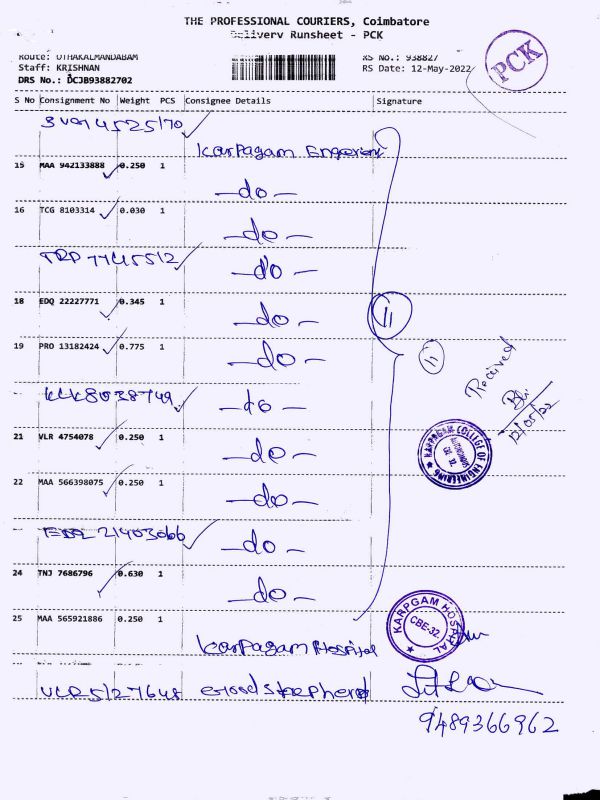 THE PROFESSIONAL COURIERS, Coimbatore
Delivery Runsheet - PCK
Route: OTHAKALMANDABAM
RS No.: 938827
PCK
Staff: KRISHNAN
RS Date: 12-May-2022
DRS No.: DCJB93882702
S No Consignment No Weight PCS Consignee Details Signature
Karpagam
15 MAA 942133888 0.250 1
-do-
16 TCG 8103314 0.030 1
-do-
TRP 7745512
-do-
18 EDQ 22227771 0.345 1
-do-
11
19 PRO 13182424 0.775 1
-do-
11
Received
KLK8038749
-do-
12/05/22
21 VLR 4754078 0.250 1
-do-
KARPAGAM COLLEGE OF ENGINEERING
AUTONOMOUS
CBE 32
22 MAA 566398075 0.250 1
-do-
21403066
-do-
24 TNJ 7686796 0.630 1
-do-
25 MAA 565921886 0.250 1
Karpagam Hospital
KARPGAM HOSPITAL
CBE-32
VLR 5127648
9489366962